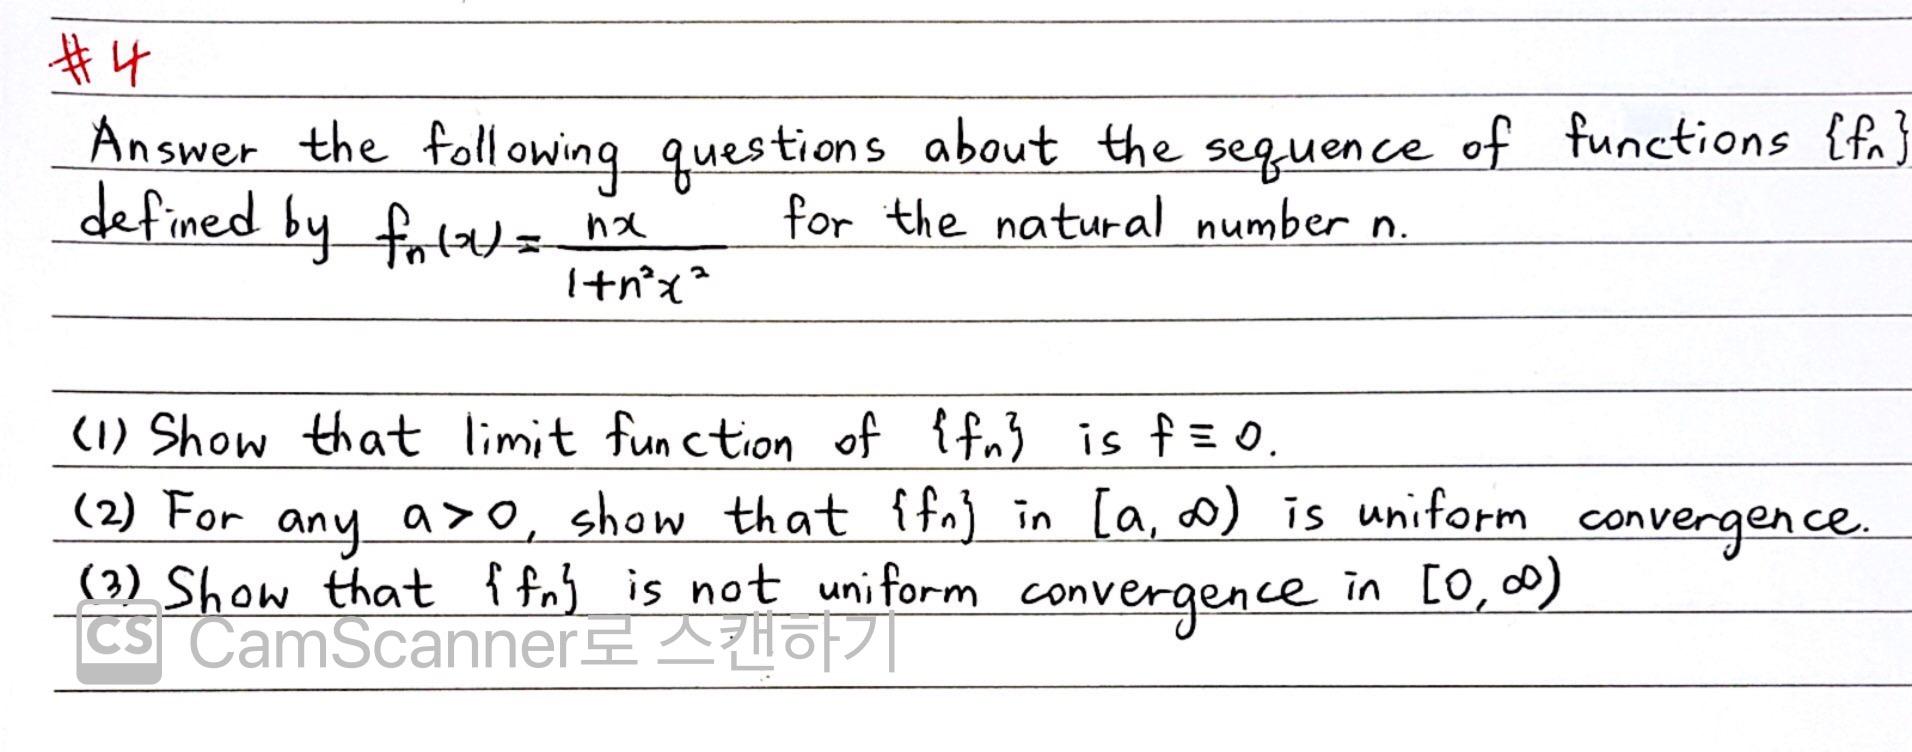 #4
Answer the following questions about the sequence of functions {fₙ}
defined by fₙ(x) = nx / (1+n²x²) for the natural number n.
(1) Show that limit function of {fₙ} is f ≡ 0.
(2) For any a>0, show that {fₙ} in [a, ∞) is uniform convergence.
(3) Show that {fₙ} is not uniform convergence in [0, ∞)
CS CamScanner로 스캔하기